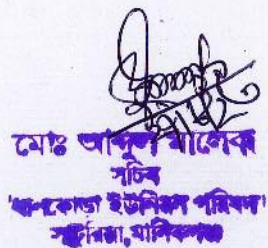 মোঃ আব্দুল খালেক
সচিব
ধানকোড়া ইউনিয়ন পরিষদ
সাটুরিয়া, মানিকগঞ্জ